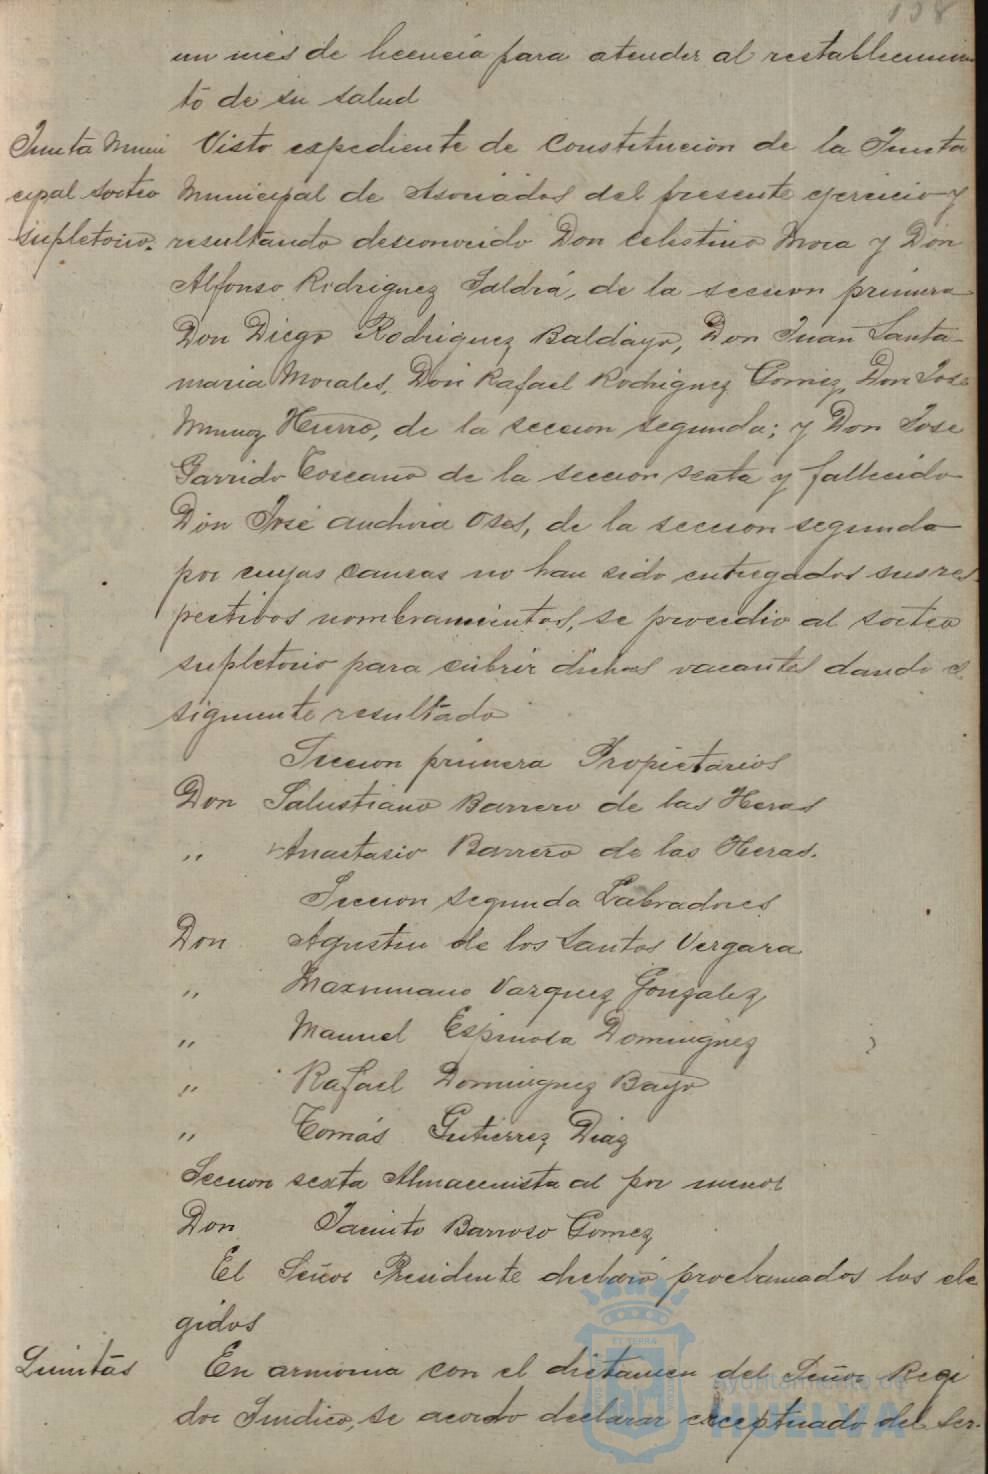 138
un mes de licencia para atender al restablecimien
to de su salud
Junta Muni
cipal sorteo
supletorio.
Visto expediente de Constitucion de la Junta
Municipal de Asociados del presente ejercicio y
resultando desconocido Don Celestino Mora y Don
Alfonso Rodriguez Saldrá, de la seccion primera
Don Diego Rodriguez Baldayo, Don Juan Santa-
maria Morales, Don Rafael Rodriguez Gomez, Don Jose
Munoz Hierro, de la seccion segunda; y Don Jose
Garrido Toscano de la seccion sexta y fallecido
Don José Oses, de la seccion segunda
por cuyas causas no han sido entregados sus res-
pectivos nombramientos, se procedio al sorteo
supletorio para cubrir dichas vacantes dando el
siguiente resultado
Seccion primera Propietarios
Don Salustiano Barrero de las Heras
" Anastasio Barrero de las Heras.
Seccion segunda Labradores
Don Agustin de los Santos Vergara
" Maximiano Vazquez Gonzalez
" Manuel Espinosa Dominguez
" Rafael Dominguez Bayo
" Tomás Gutierrez Diaz
Seccion sexta Almacenista al por menor
Don Jacinto Barroso Gomez
El Señor Presidente declaró proclamados los ele
gidos
Quintas
En armonia con el dictamen del Señor Regi
dor Sindico, se acordo declarar exceptuado del ser-
Ayuntamiento de
HUELVA